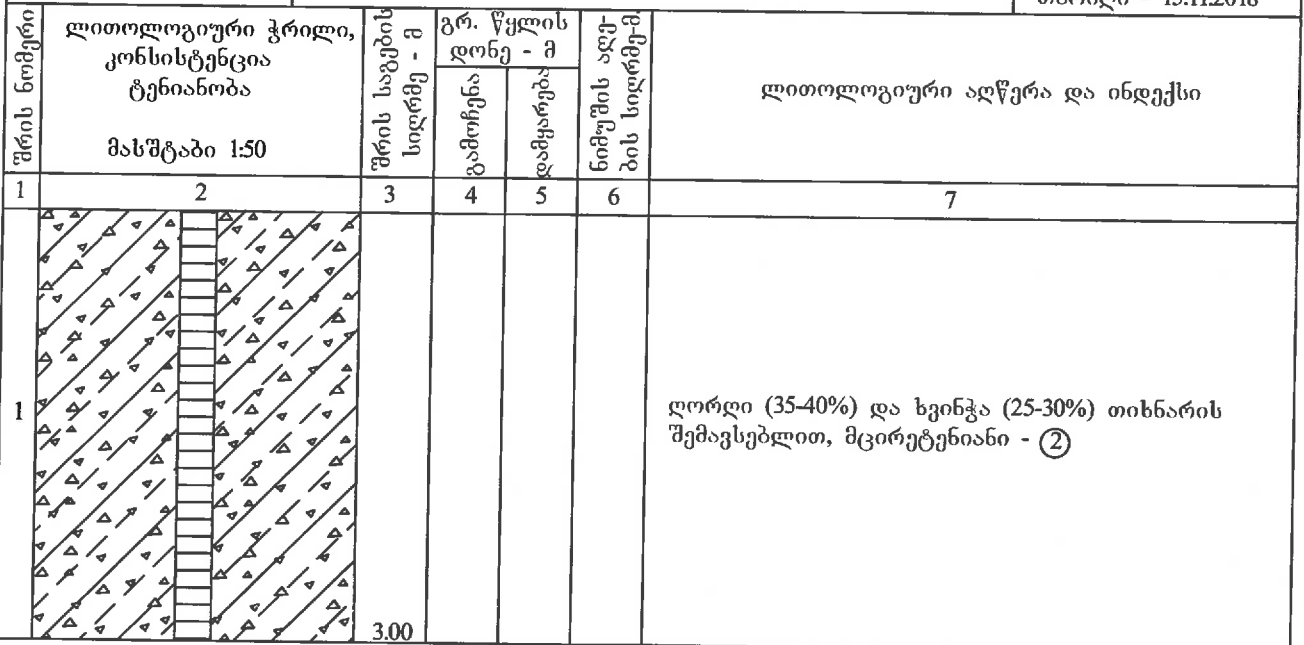 15.11.2018
შრის ნომერი
ლითოლოგიური ჭრილი,
კონსისტენცია
ტენიანობა
მასშტაბი 1:50
შრის საგების
სიღრმე - მ
გრ. წყლის
დონე - მ
გამოჩენა
დამყარება
ნიმუშის აღე-
ბის სიღრმე-მ.
ლითოლოგიური აღწერა და ინდექსი
1 2 3 4 5 6 7
1
3.00
ღორღი (35-40%) და ხვინჭა (25-30%) თიხნარის
შემავსებლით, მცირეტენიანი - ②